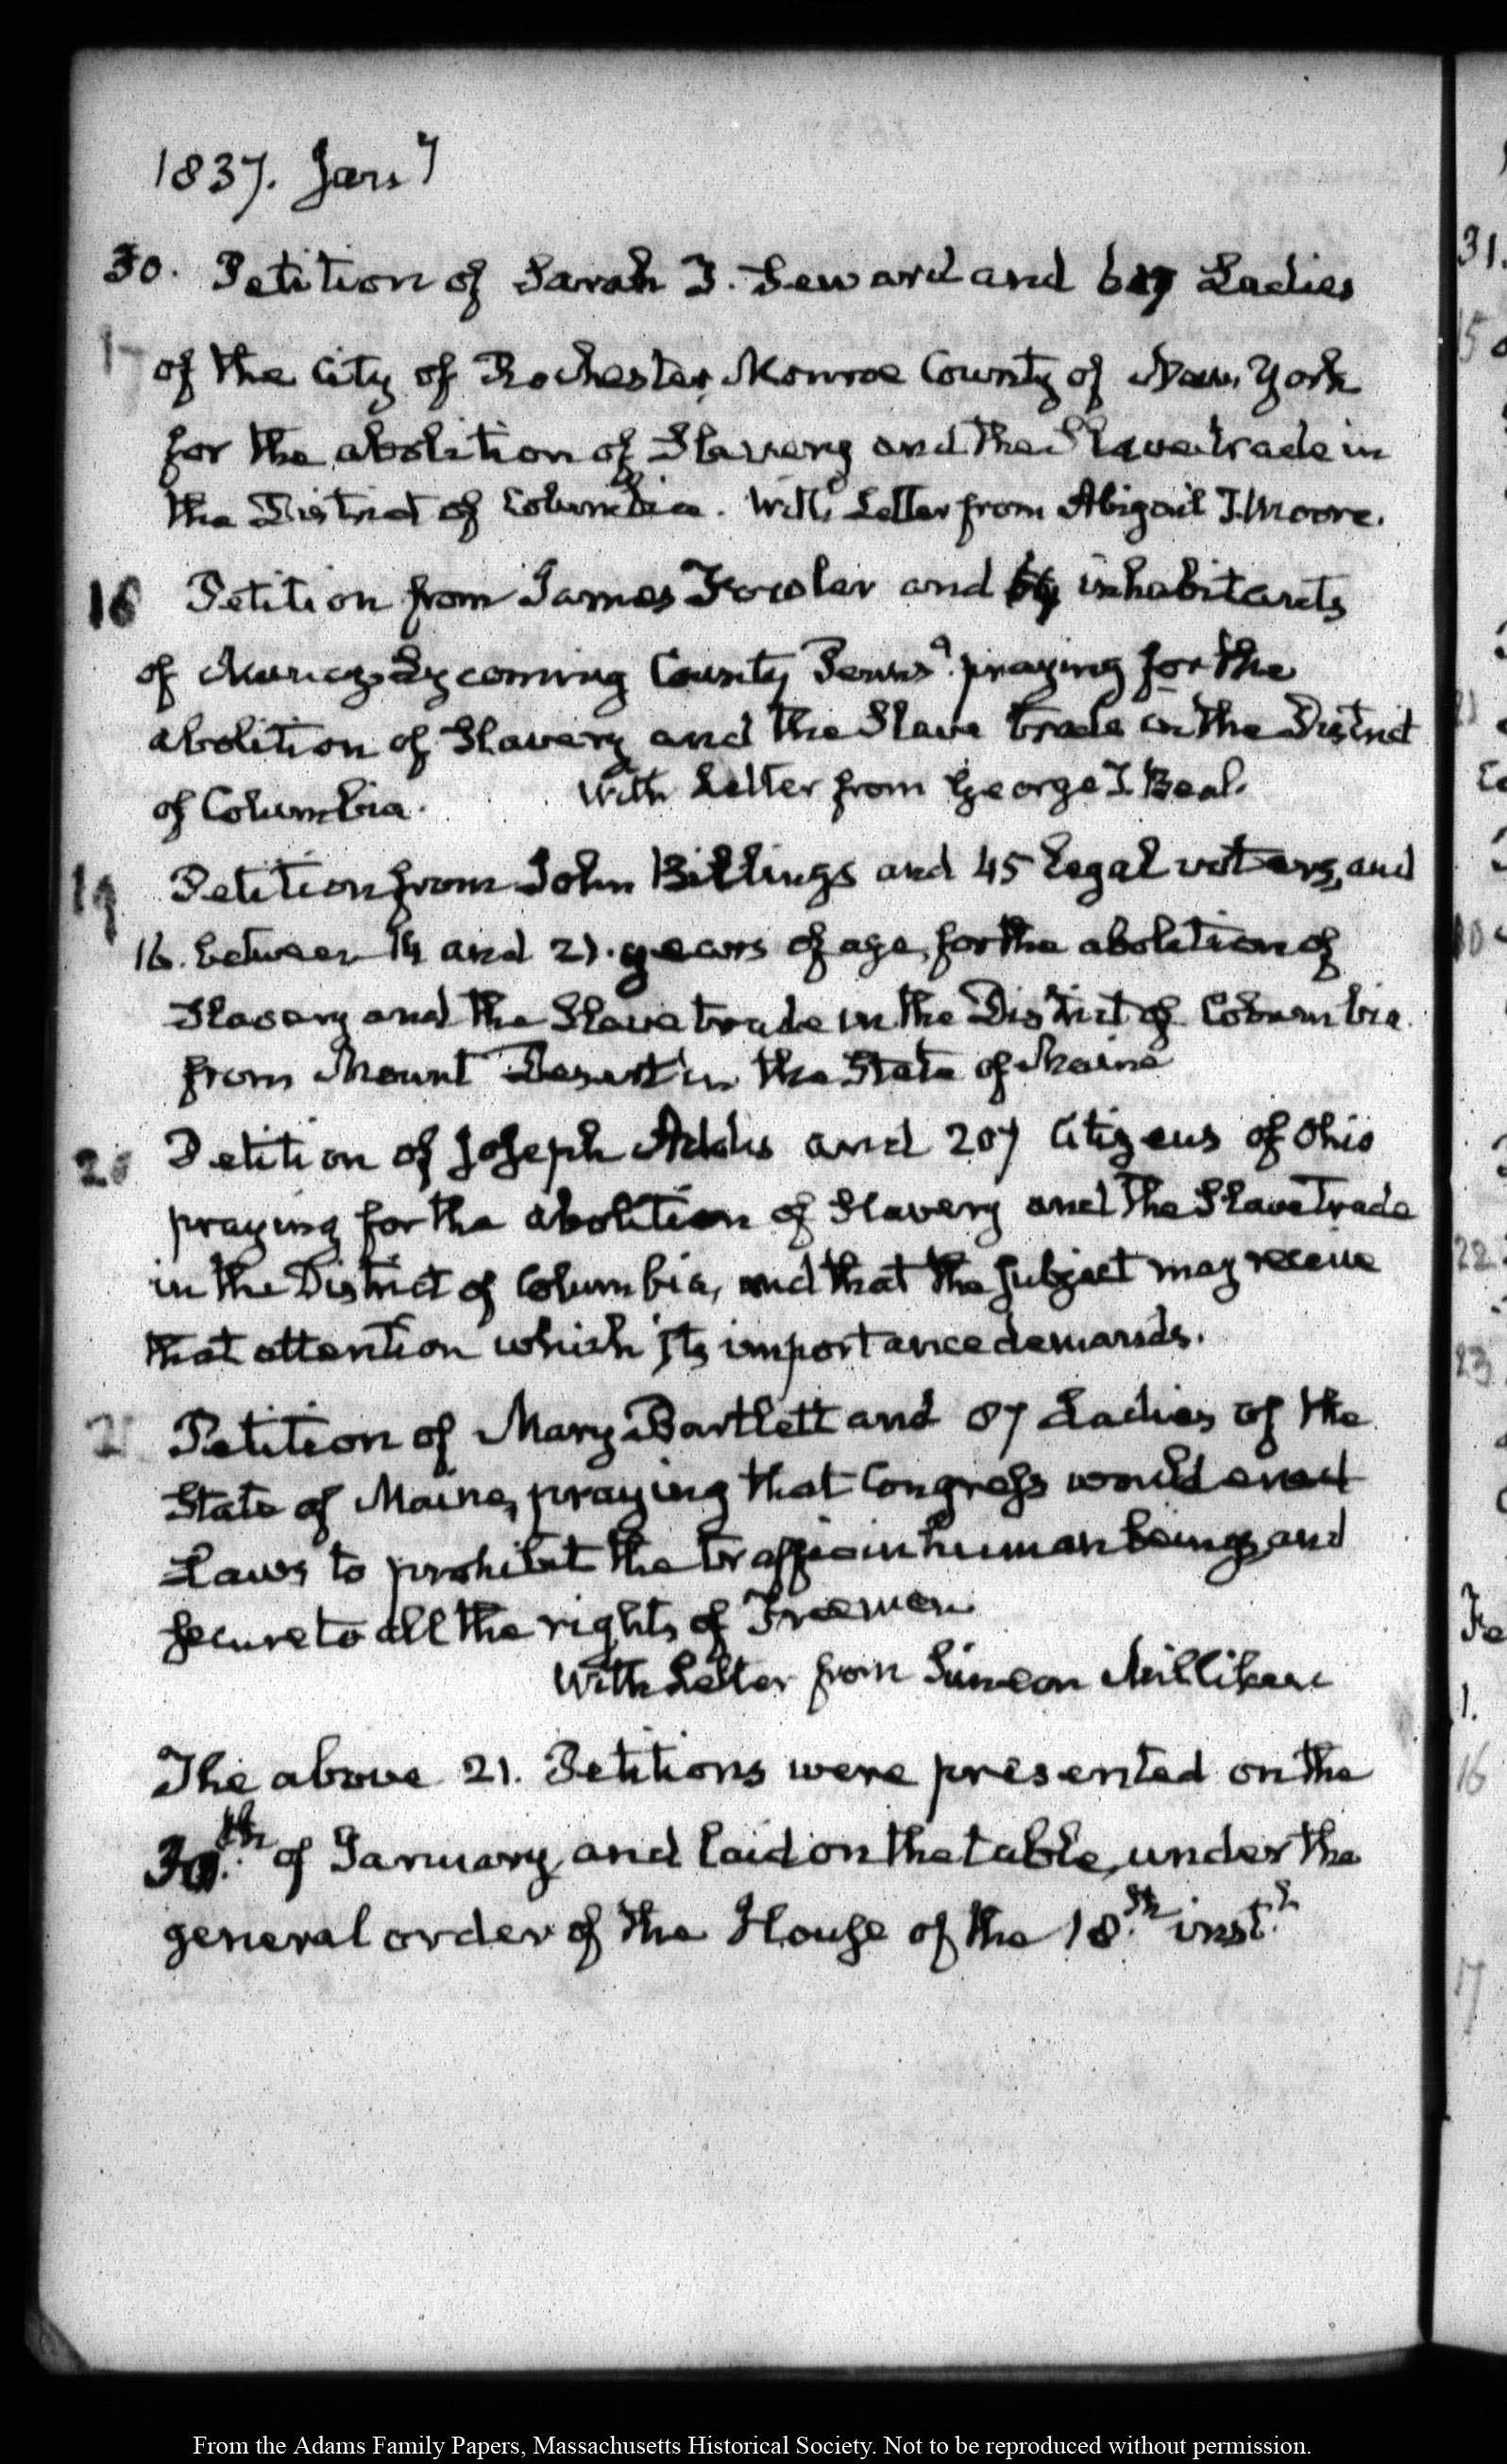 1837. Jany
30. Petition of Sarah T. Seward and Ladies
17 of the City of Rochester, Monroe County of New York
for the abolition of Slavery and the Slave trade in
the District of Columbia. With Letter from Abigail T. Moore.
18 Petition from James Fowler and inhabitants
of Muncy, Lycoming County Penns.a praying for the
abolition of Slavery and the Slave trade in the District
of Columbia. With Letter from George T Beal.
19 Petition from John Billings and 45 legal voters, and
16. between 14 and 21. years of age, for the abolition of
Slavery and the Slave trade in the District of Columbia
from Mount Desert in the State of Maine
20 Petition of Joseph Addis and 207 Citizens of Ohio
praying for the abolition of Slavery and the Slave Trade
in the District of Columbia, and that the subject may receive
that attention which its importance demands.
21 Petition of Mary Bartlett and 87 Ladies of the
State of Maine, praying that Congress would enact
Laws to prohibit the traffic in human beings, and
secure to all the rights of Freemen
With Letter from Simeon Milliken
The above 21. Petitions were presented on the
30.th of January, and laid on the table, under the
general order of the House of the 18.th inst.t
31.
15
21
10
22
23
Fe
1.
16
17
From the Adams Family Papers, Massachusetts Historical Society. Not to be reproduced without permission.